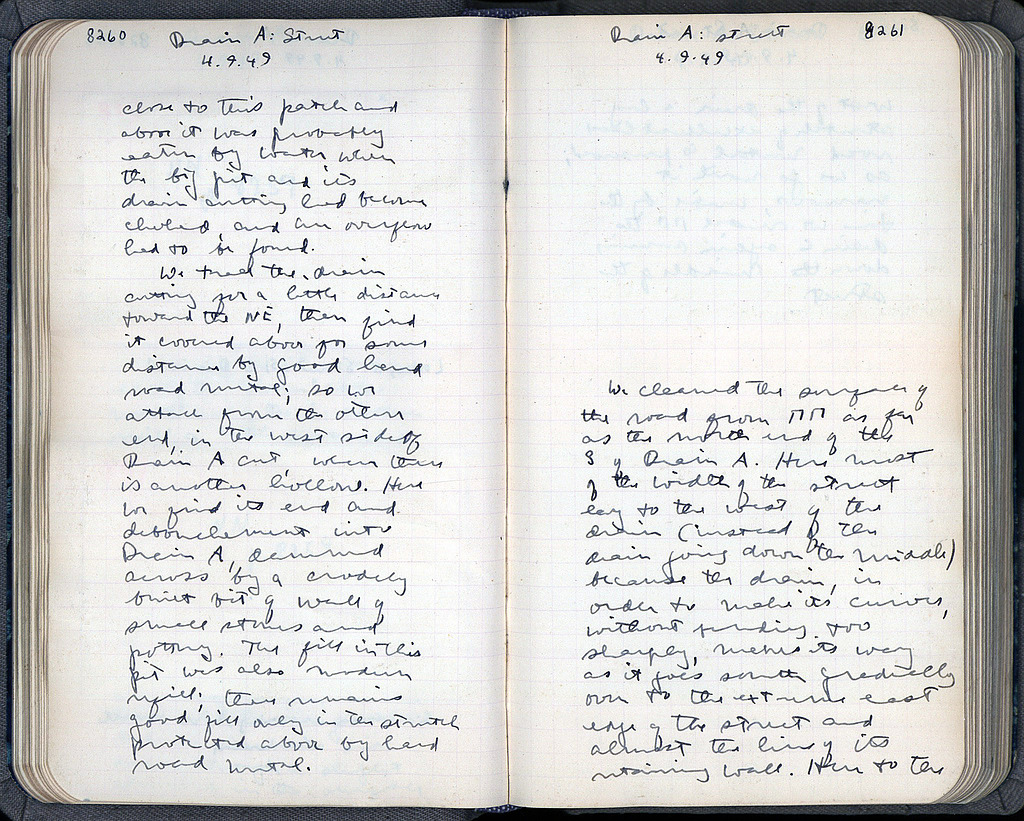 8260 Drain A: Street
4.9.49
close to this patch and
above it was probably
eaten by water when
the big pit and its
drain cutting had become
choked, and an overflow
had to be found.
We trace the drain
cutting for a little distance
toward the NE, then find
it covered above for some
distance by good hard
road metal; so we
attack from the other
end, in the west side of
Drain A cut, where there
is another hollow. Here
we find its end and
debouchement into
Drain A, dammed
across by a crudely
built bit of wall of
small stones and
pottery. The fill in this
pit was also modern
refill; there remains
good fill only in the stretch
protected above by hard
road metal.
Drain A: street 8261
4.9.49
We cleaned the surface of
the road from MM as far
as the north end of the
S of Drain A. Here most
of the width of the street
lay to the west of the
drain (instead of the
drain going down the middle)
because the drain, in
order to make its curves,
without bending too
sharply, makes its way
as it goes south gradually
over to the extreme east
edge of the street and
almost the line of its
retaining wall. Here to the